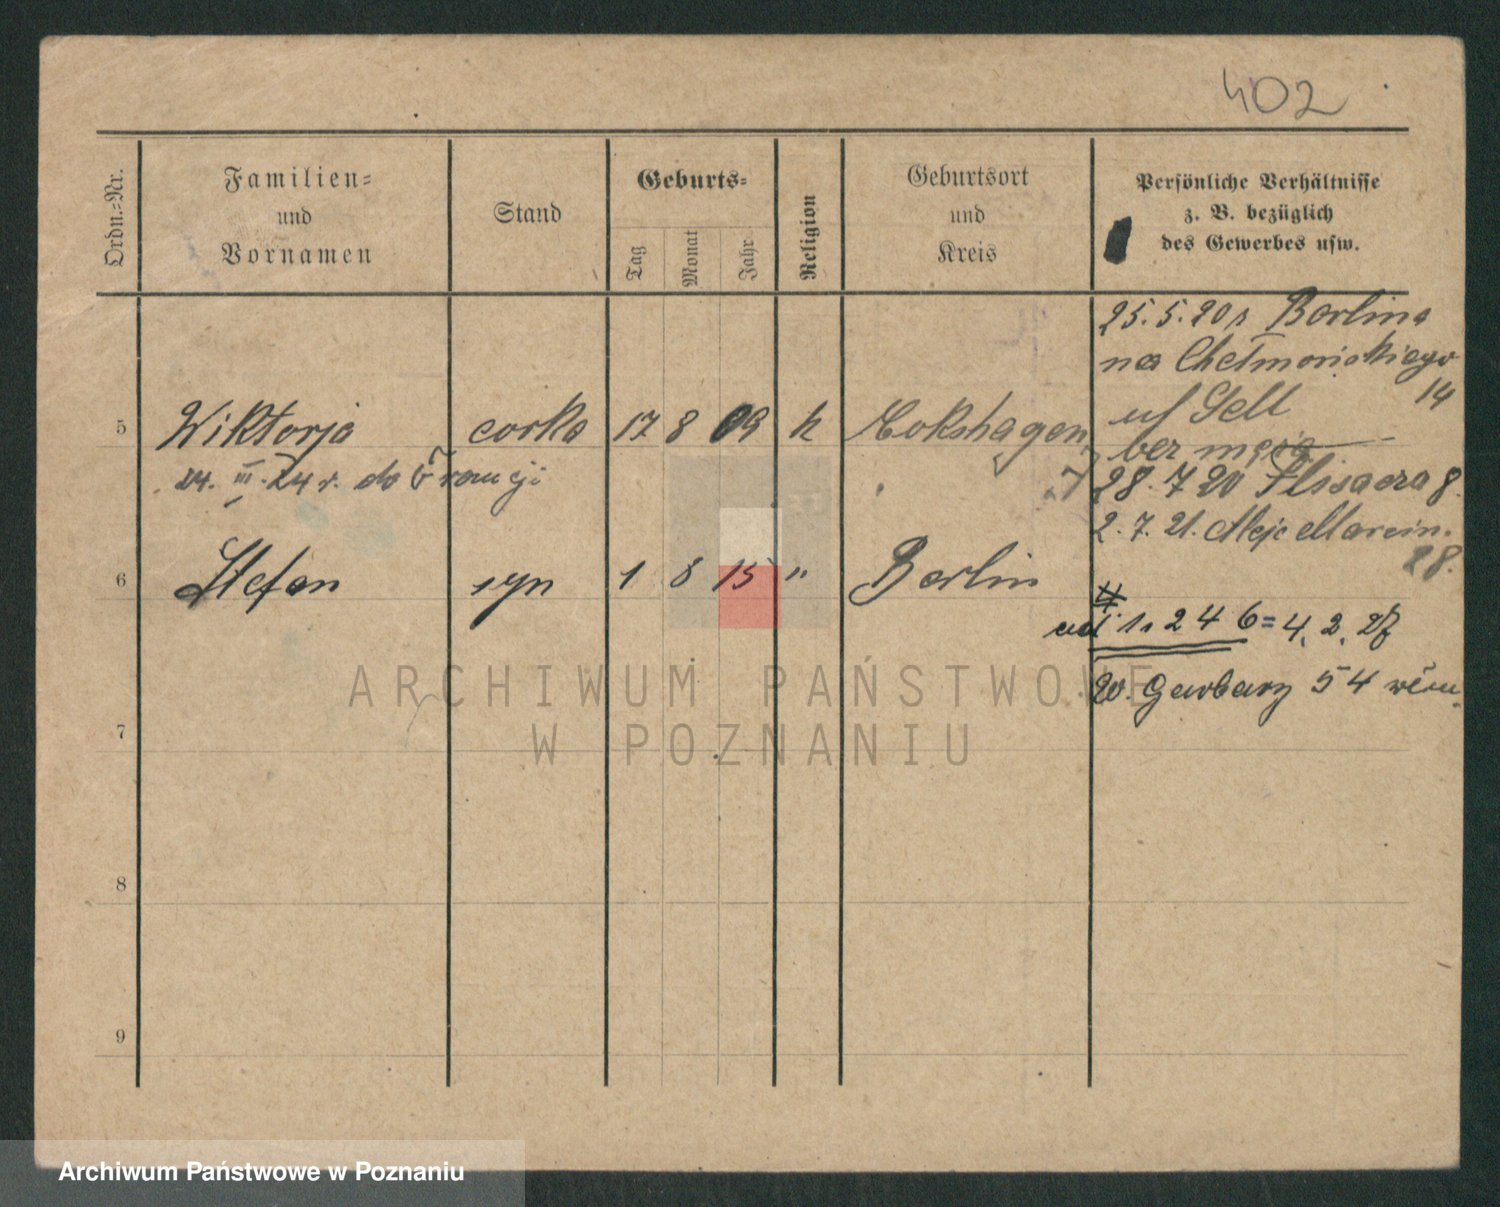 402
Ordn.-Nr.
Familien-
und
Vornamen
Stand
Geburts-
Tag
Monat
Jahr
Religion
Geburtsort
und
Kreis
Persönliche Verhältnisse
z. B. bezüglich
des Gewerbes usw.
25.5.20 Berlina
na Chełmońskiego
14
5 Wiktorja corka 17 8 09 k
24. III. 24 r. do Francji
bez męża
28. 7 20 8.
2. 7. 21. Aleje Marcin.
28.
6 Stefan syn 1 8 15 " Berlin
1, 2 4 6 = 4. 2. 27
W. Garbary 54
7
8
9
ARCHIWUM PAŃSTWOWE
W POZNANIU
Archiwum Państwowe w Poznaniu